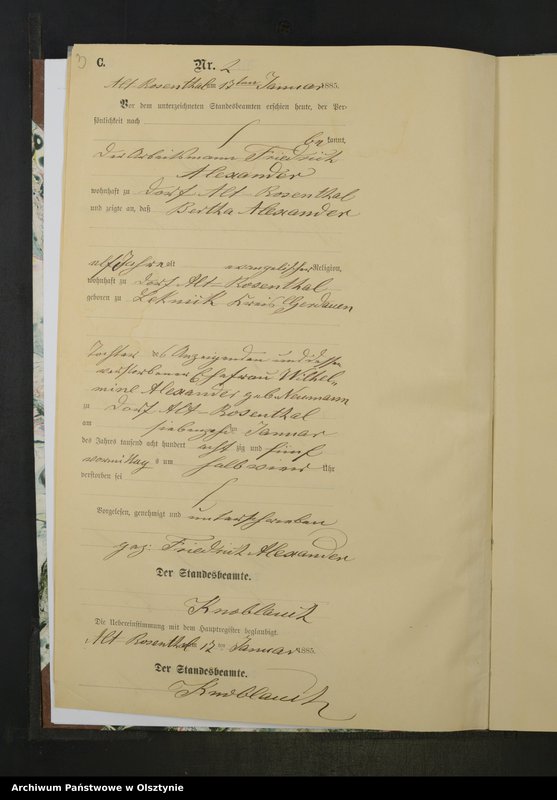 C.
Nr. 2
Alt Rosenthal am ten Januar 1885.
Vor dem unterzeichneten Standesbeamten erschien heute, der Per-
sönlichkeit nach
be kannt,
der Arbeitsmann Friedrich
Alexander
wohnhaft zu Dorf Alt-Rosenthal
und zeigte an, daß Bertha Alexander
elf Jahre alt evangelischer Religion,
wohnhaft zu Dorf Alt-Rosenthal
geboren zu Kreis Gerdauen
Tochter des Anzeigenden und dessen
verstorbener Ehefrau Wilhel-
mine Alexander geb. Neumann
zu Dorf Alt-Rosenthal
am Januar
des Jahres tausend acht hundert acht zig und fünf
vormittag s um halb vier Uhr
verstorben sei
Vorgelesen, genehmigt und unterschrieben
gez: Friedrich Alexander
Der Standesbeamte.
Die Uebereinstimmung mit dem Hauptregister beglaubigt.
Alt Rosenthal am ten Januar 1885.
Der Standesbeamte.
Archiwum Państwowe w Olsztynie